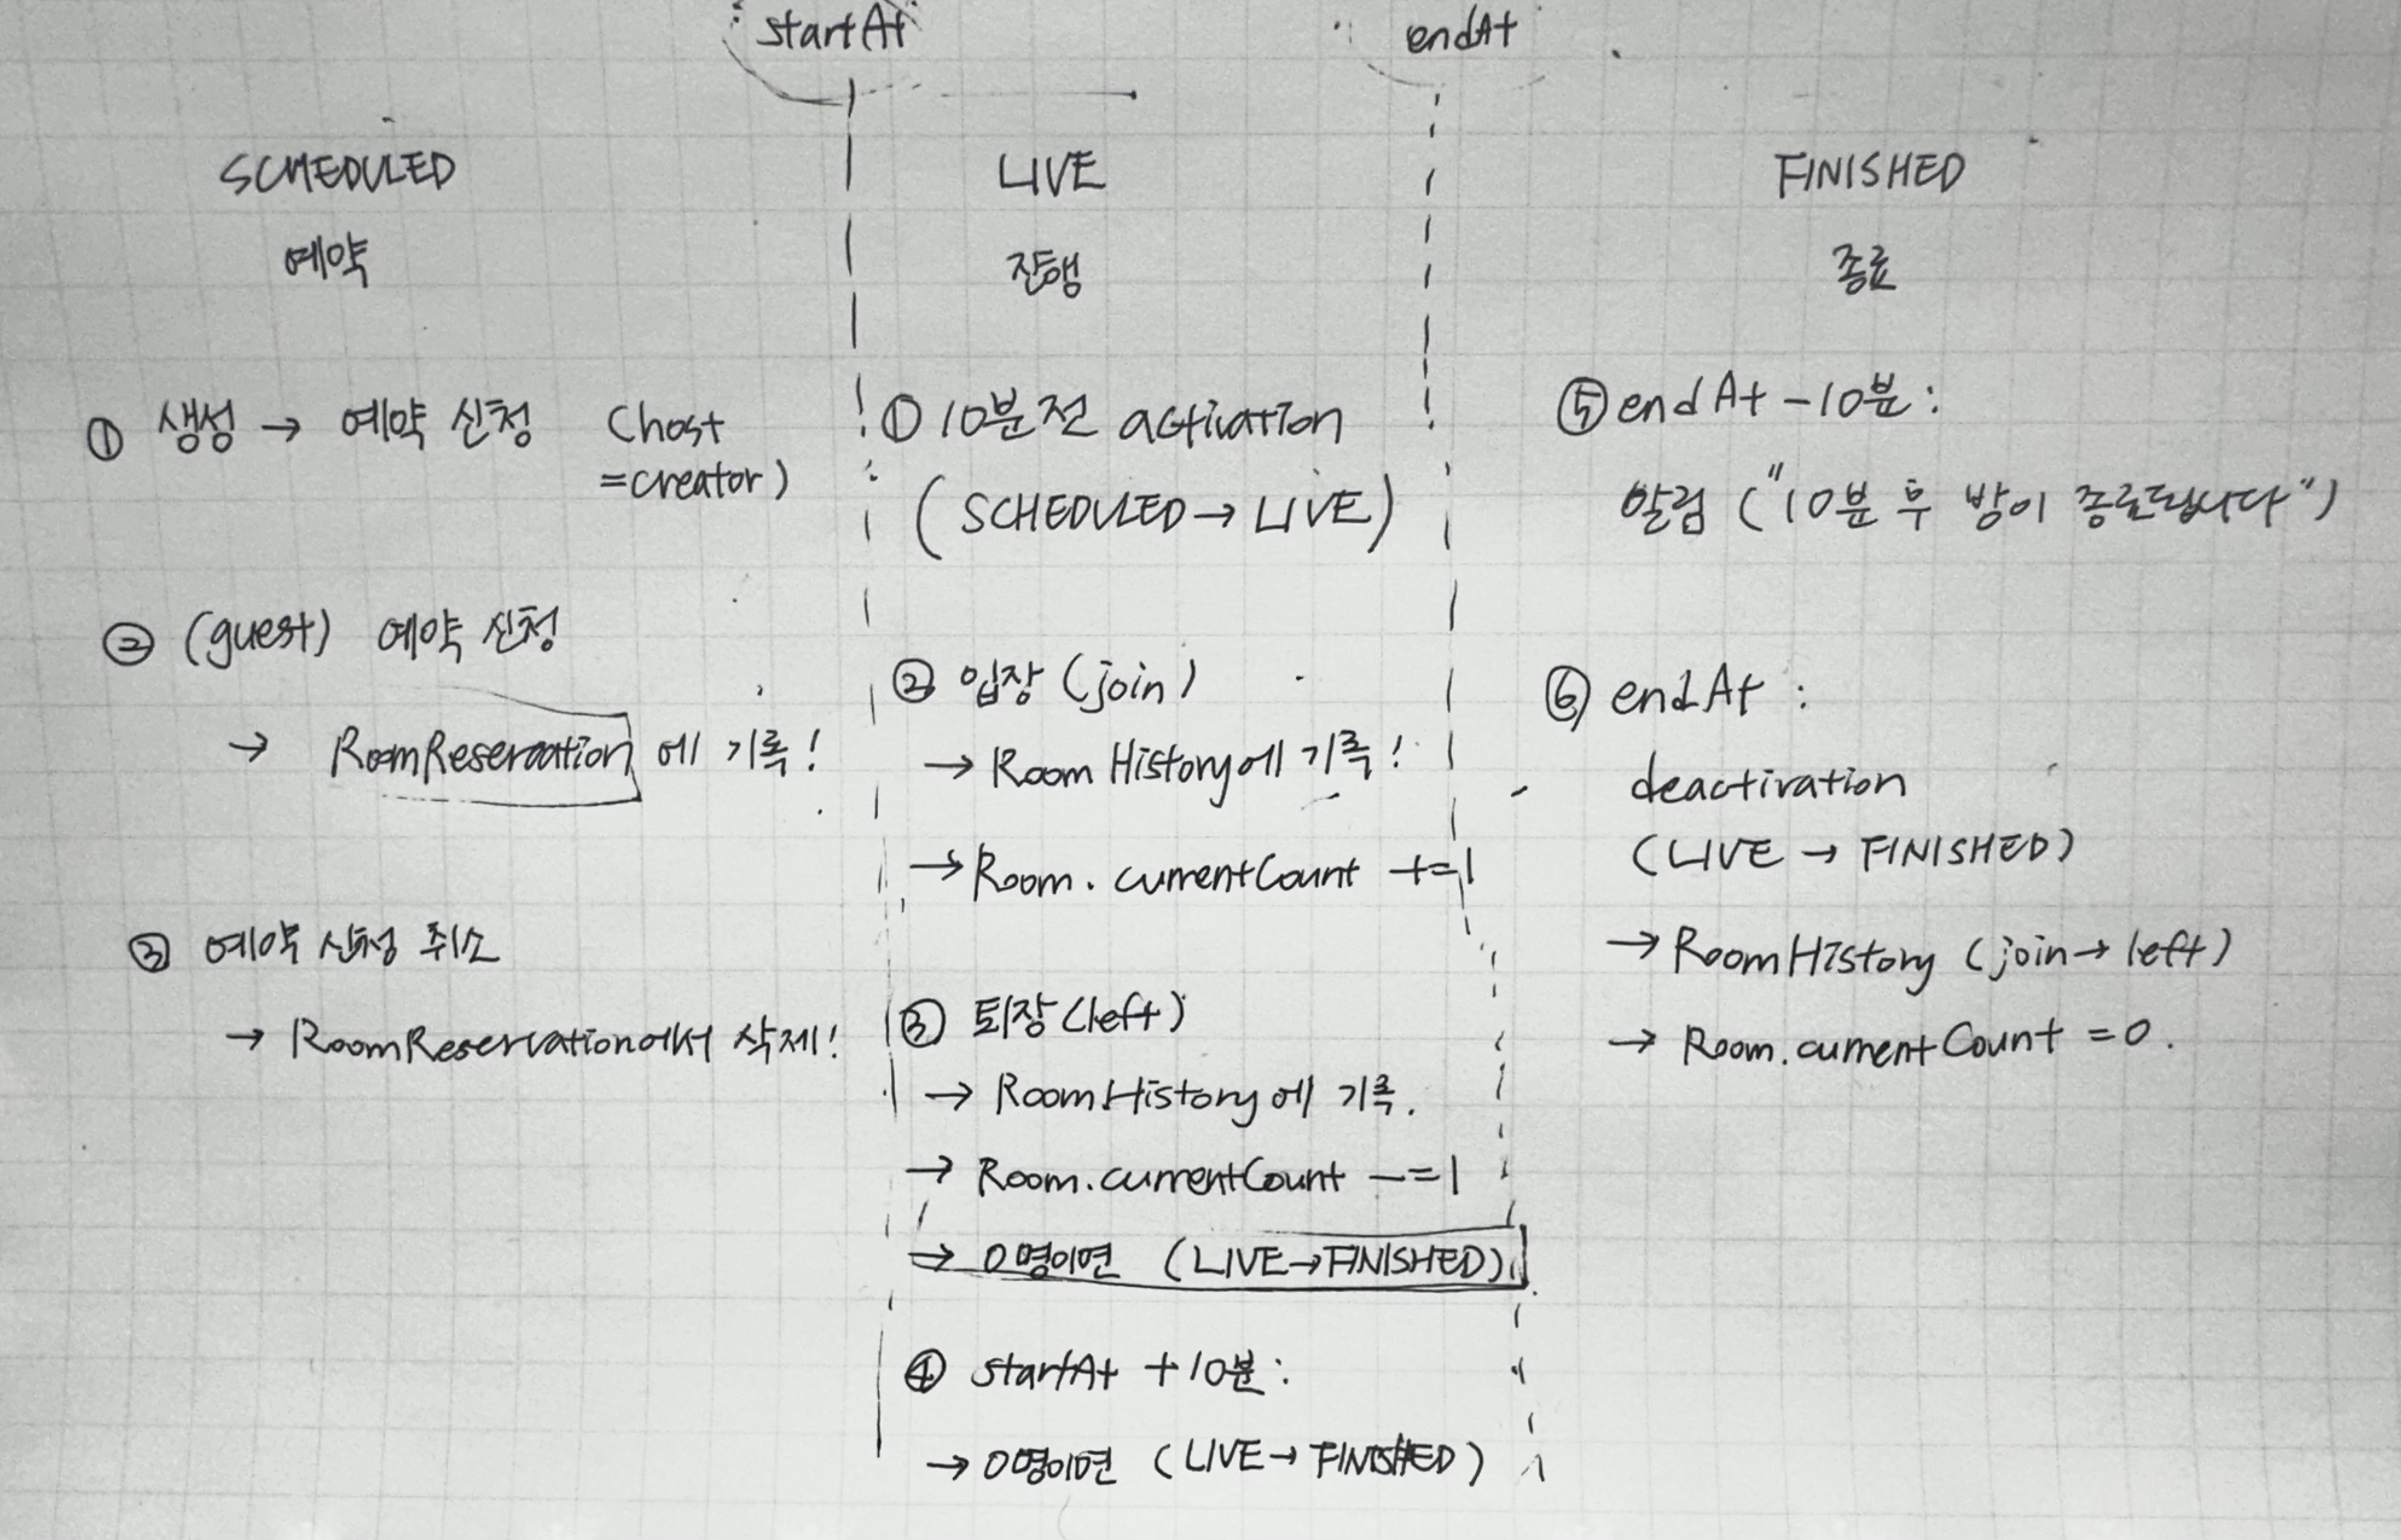 startAt
endAt
SCHEDULED
예약
① 생성 → 예약 신청 (host
=creator)
② (guest) 예약 신청
→ RoomReservation에 기록!
③ 예약 신청 취소
→ RoomReservation에서 삭제!
LIVE
진행
① 10분 전 activation
(SCHEDULED → LIVE)
② 입장 (join)
→ RoomHistory에 기록!
→ Room.currentCount +=1
③ 퇴장 (left)
→ RoomHistory에 기록.
→ Room.currentCount -=1
→ 0명이면 (LIVE→FINISHED)
④ startAt +10분:
→ 0명이면 (LIVE→FINISHED)
FINISHED
종료
⑤ endAt -10분:
알림 ("10분 후 방이 종료됩니다")
⑥ endAt :
deactivation
(LIVE → FINISHED)
→ RoomHistory (join→left)
→ Room.currentCount =0.